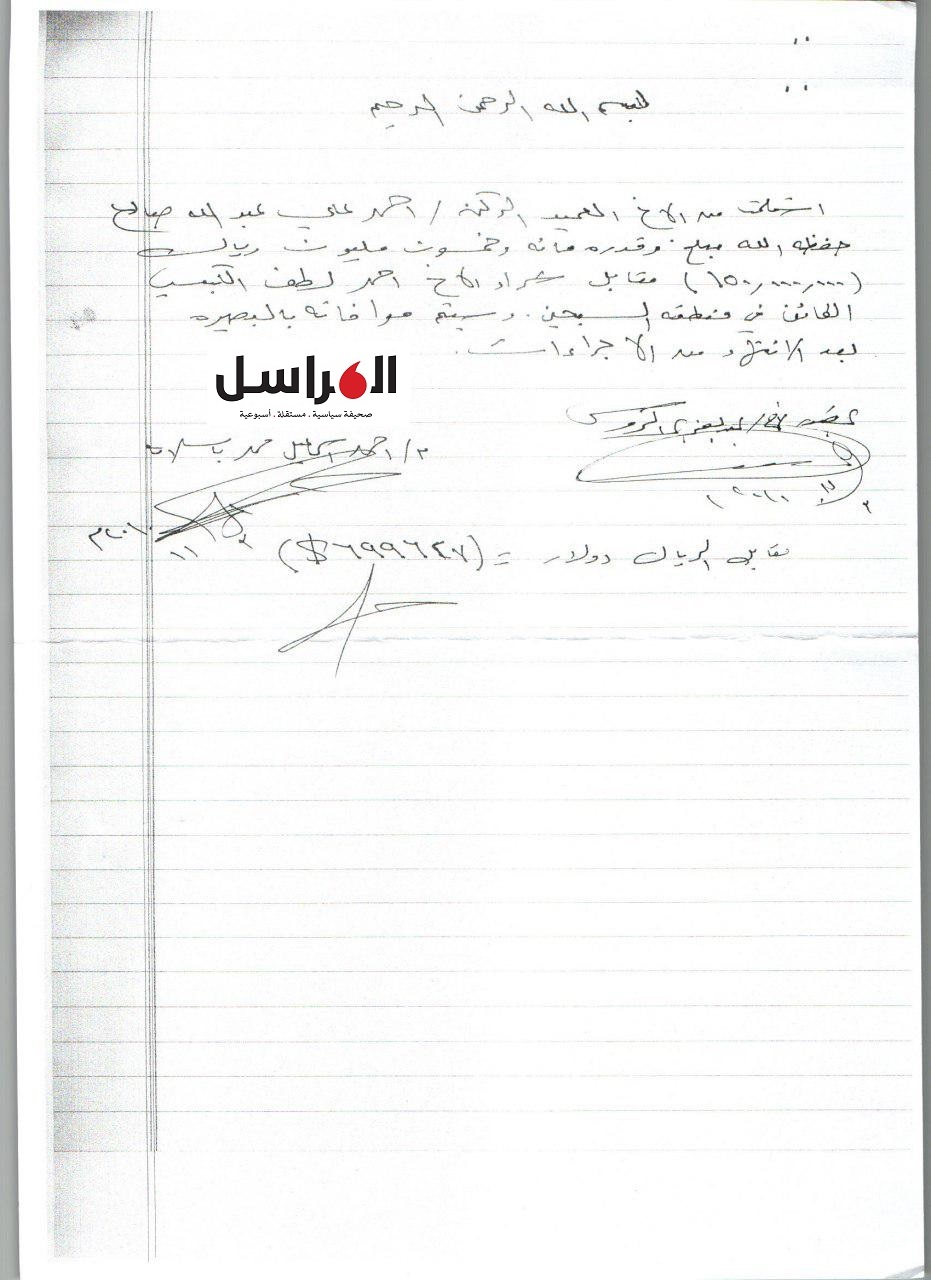 بسم الله الرحمن الرحيم
استلمت من الاخ العميد الركن / احمد علي عبد الله صالح
حفظه الله مبلغ وقدره مائه وخمسون مليون ريال
(١٥٠,٠٠٠,٠٠٠) مقابل شراء الاخ احمد لطف
الكائن في منطقه السبعين. وسيتم موافاته بالبصيره
بعد الانتهاء من الاجراءات.
المراسل
صحيفة سياسية . مستقلة . أسبوعية
بحضور الاخ/
م/ احمد اسماعيل محمد
٢٠١٠م
٢٠١٠
مقابل الريال دولار = (٦٩٩٦٢٧$)